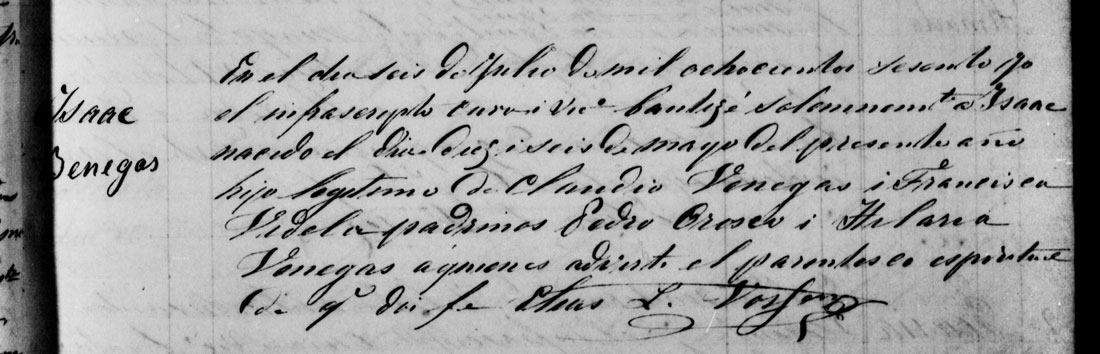 Isaac
Benegas
En el dia seis de Julio de mil ochocientos sesenta yo
el infrascripto cura i vic.º bautizé solemnem.te a Isaac
nacido el dia diez i seis de mayo del presente año
hijo legitimo de Claudio Venegas i Francisca
Videla padrinos Pedro Orosco i Hilaria
Venegas a quienes advertí el parentesco espiritual
de q.e doi fe Elias L.